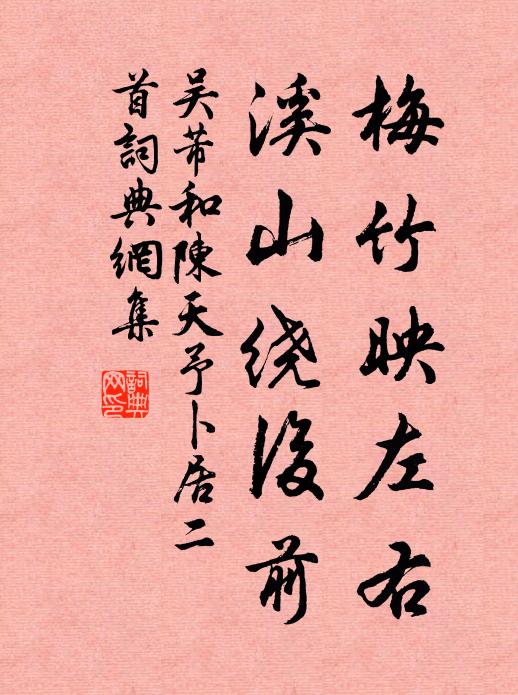 梅竹映左右
溪山绕後前
吴芾和陳天予卜居二
首詞典網集
詞典
网印